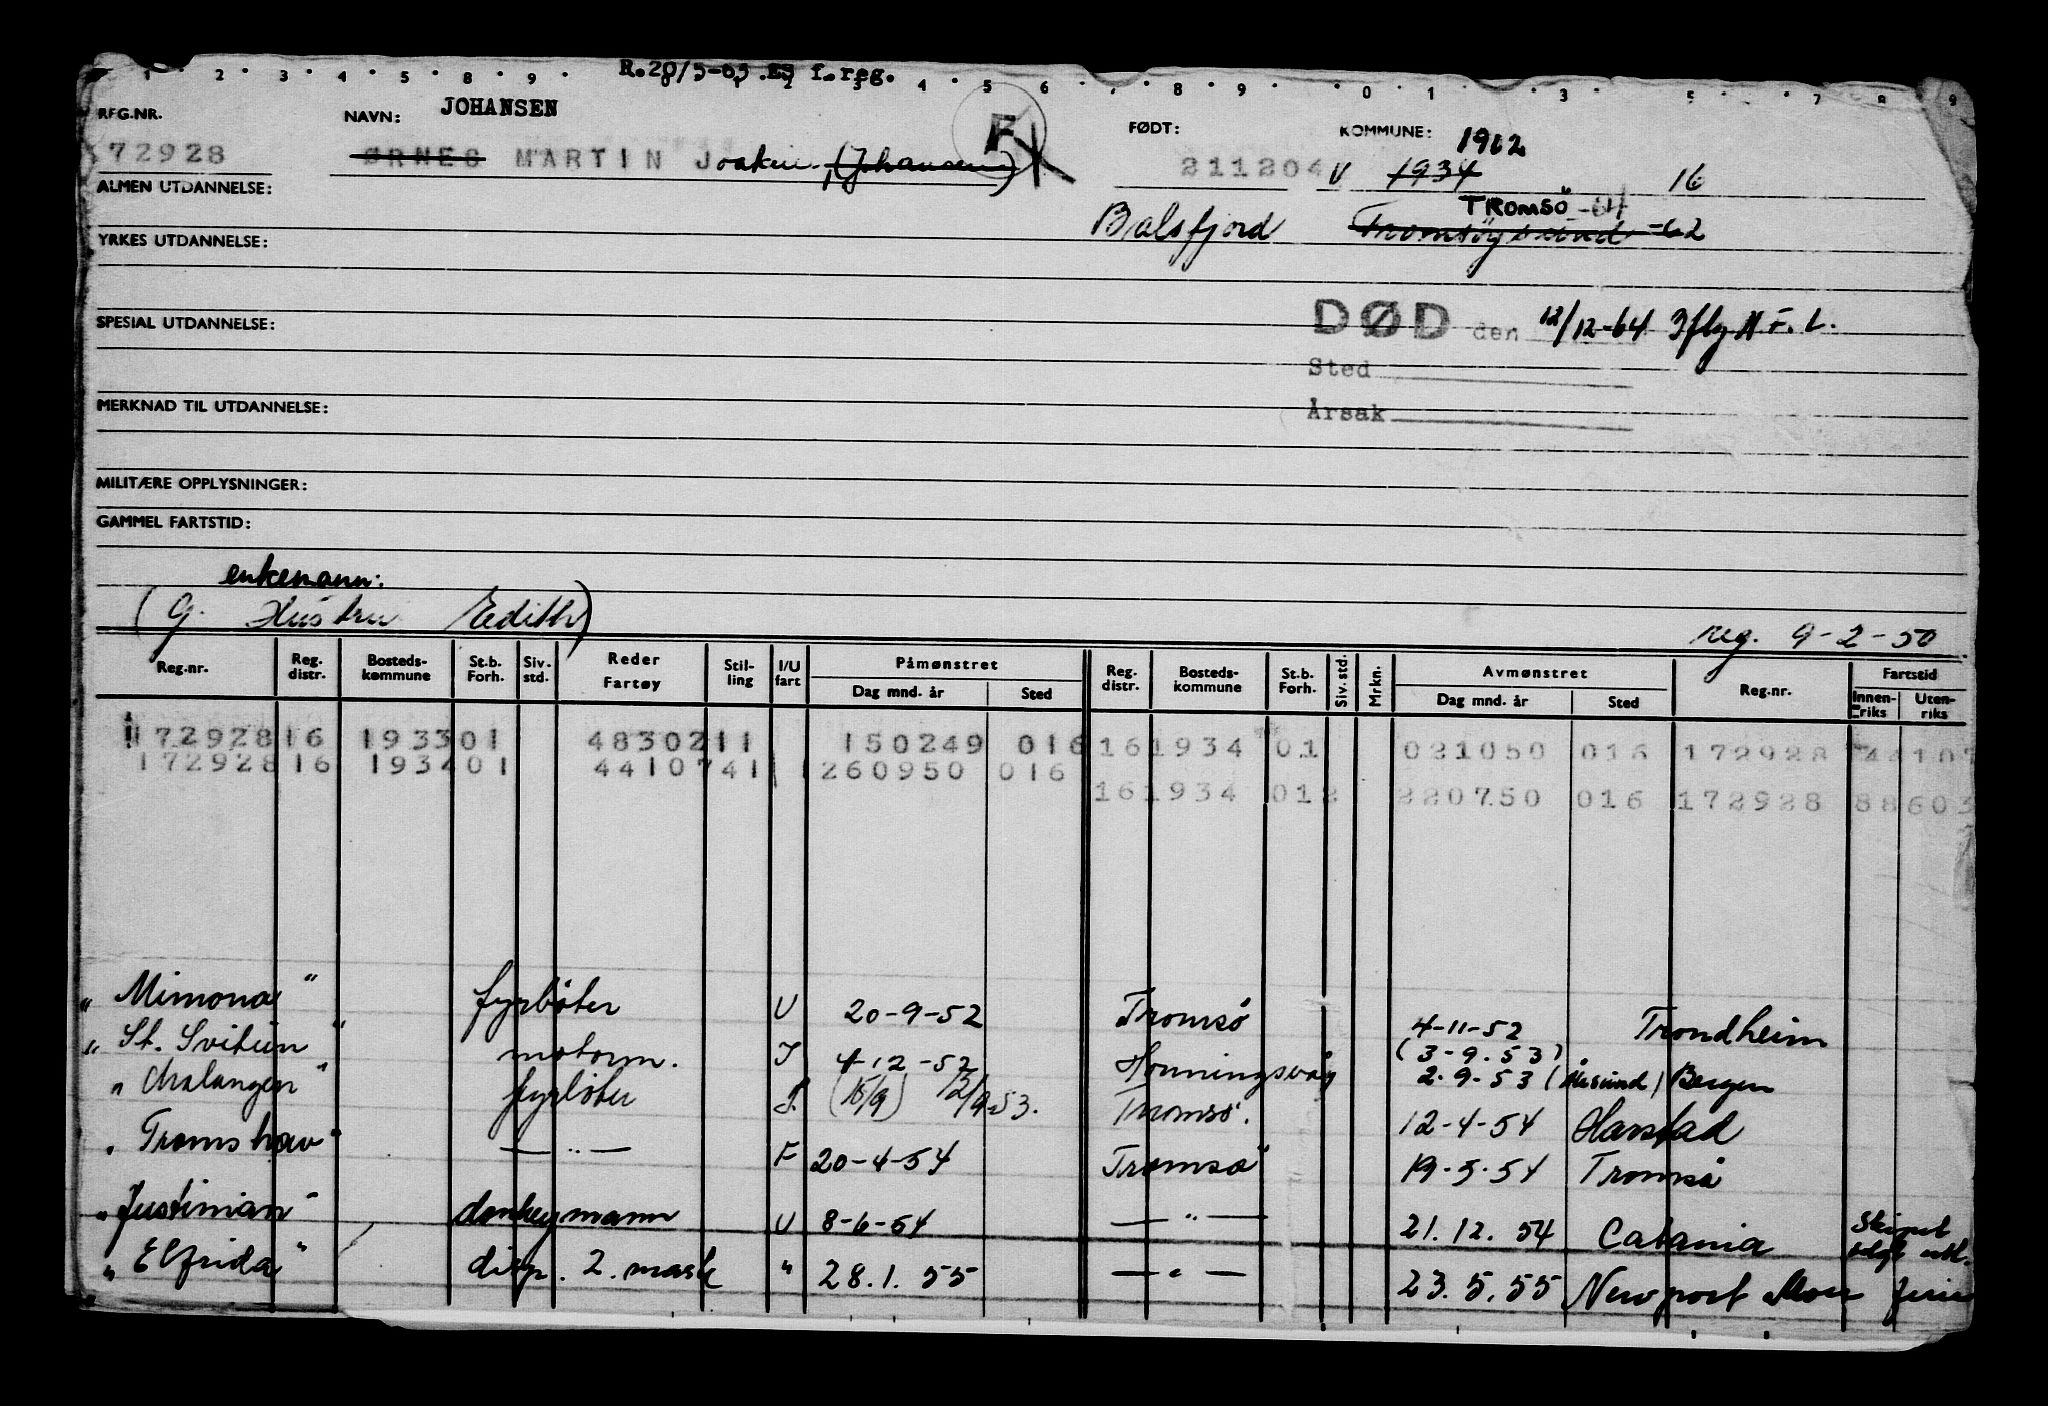 1 2 3 4 5 8 9 R.20/5-65 ES f.reg. 2 3 4 5 6 8 9 0 1 3 5 7 8 9
REG.NR. NAVN: JOHANSEN F FØDT: KOMMUNE: 1902
72928 ØRNES MARTIN Joakim, (Johansen) 211204 V 1934 16
ALMEN UTDANNELSE: TROMSÖ -64
Balsfjord Tromsøysund -62
YRKES UTDANNELSE:
SPESIAL UTDANNELSE: DØD den 12/12-64 Iflg A F. L.
Sted
MERKNAD TIL UTDANNELSE: Årsak
MILITÆRE OPPLYSNINGER:
GAMMEL FARTSTID:
enkemann:
(G. Hustru Edith) reg. 9-2-50
Reg.nr. Reg. distr. Bosteds-kommune St.b. Forh. Siv. std. Reder Fartøy Stil-ling I/U fart Påmønstret Dag mnd. år Sted Reg. distr. Bosteds-kommune St.b. Forh. Siv. std. Mrkn. Avmønstret Dag mnd. år Sted Reg.nr. Fartstid Innen-riks Uten-riks
172928 16 1933 01 4830211 150249 016 16 1934 01 021050 016 172928 44 107
172928 16 1934 01 4410741 1 260950 016
16 1934 012 220750 016 172928 88 603
"Mimona" fyrböter U 20-9-52 Tromsö 4-11-52 Trondheim
"St. Svitiun" motorm. I 4-12-52 Honningsvåg (3-9.53) 2.9.53 (Ålesund) Bergen
"Malangen" fyrböter I. (15/9) 12/9-53. Tromsö. 12-4-54 Harstad
"Tromshav" — " — F 20-4-54 Tromsö 19-5-54 Tromsö
"Justinian" donkeymann U 8-6-54 — " — 21.12.54 Catania Skipet solgt utl.
"Elfrida" disp. 2. mask " 28.1.55 — " — 23.5.55 Newport Mon ferie